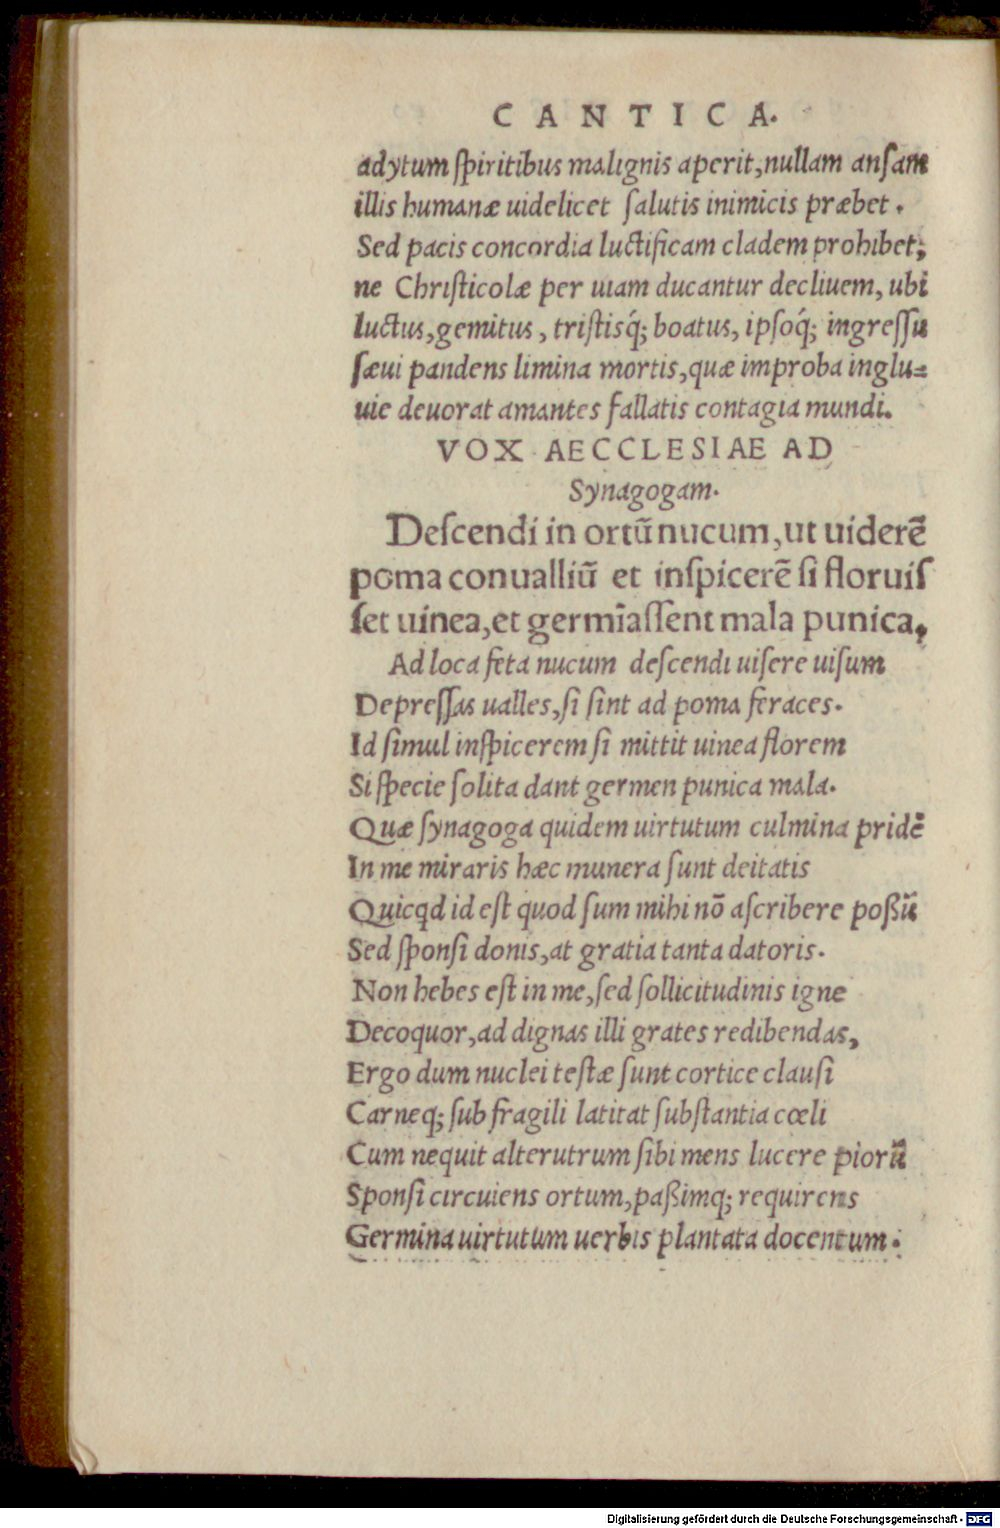 CANTICA.
adytum ſpiritibus malignis aperit, nullam anſam
illis humanæ uidelicet ſalutis inimicis præbet.
Sed pacis concordia luctificam cladem prohibet;
ne Chriſticolæ per uiam ducantur decliuem, ubi
luctus, gemitus, triſtisq́; boatus, ipſoq́; ingreſſu
ſæui pandens limina mortis, quæ improba inglu⸗
uie deuorat amantes fallatis contagia mundi.
VOX AECCLESIAE AD
Synagogam.
Deſcendi in ortū nucum, ut uiderē
poma conualliū et inſpicerē ſi floruiſ
ſet uinea, et germīaſſent mala punica,
Ad loca feta nucum deſcendi uiſere uiſum
Depreſſas ualles, ſi ſint ad poma feraces.
Id ſimul inſpicerem ſi mittit uinea florem
Si ſpecie ſolita dant germen punica mala.
Quæ ſynagoga quidem uirtutum culmina pridē
In me miraris hæc munera ſunt deitatis
Quicqd id eſt quod ſum mihi nō aſcribere poßū
Sed ſponſi donis, at gratia tanta datoris.
Non hebes eſt in me, ſed ſollicitudinis igne
Decoquor, ad dignas illi grates redibendas,
Ergo dum nuclei teſtæ ſunt cortice clauſi
Carneq; ſub fragili latitat ſubſtantia cœli
Cum nequit alterutrum ſibi mens lucere piorū
Sponſi circuiens ortum, paßimq; requirens
Germina uirtutum uerbis plantata docentum.
Digitalisierung gefördert durch die Deutsche Forschungsgemeinschaft - DFG